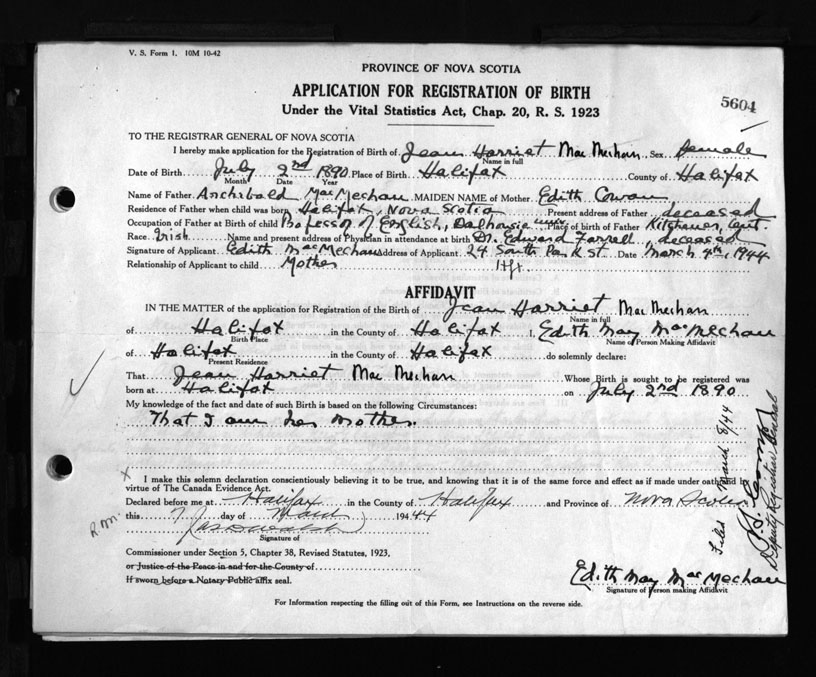 V. S. Form 1. 10M 10-42
PROVINCE OF NOVA SCOTIA
APPLICATION FOR REGISTRATION OF BIRTH
5604
Under the Vital Statistics Act, Chap. 20, R. S. 1923
TO THE REGISTRAR GENERAL OF NOVA SCOTIA
I hereby make application for the Registration of Birth of Jean Harriet MacMechan Sex female
Name in full
Date of Birth July 2nd 1890 Place of Birth Halifax County of Halifax
Month Date Year
Name of Father Archibald MacMechan MAIDEN NAME of Mother Edith Cowan
Residence of Father when child was born Halifax, Nova Scotia Present address of Father deceased
Occupation of Father at Birth of child Professor of English, Dalhousie Univ Place of birth of Father Kitchener, Ont.
Race Irish Name and present address of Physician in attendance at birth Dr. Edward Farrell, deceased
Signature of Applicant Edith MacMechan Address of Applicant 24 South Park St. Date March 4th, 1944
Relationship of Applicant to child Mother Hfx
AFFIDAVIT
IN THE MATTER of the application for Registration of the Birth of Jean Harriet MacMechan
Name in full
of Halifax in the County of Halifax I, Edith May MacMechan
Birth Place Name of Person Making Affidavit
of Halifax in the County of Halifax do solemnly declare:
Present Residence
That Jean Harriet MacMechan Whose Birth is sought to be registered was
born at Halifax on July 2nd 1890
My knowledge of the fact and date of such Birth is based on the following Circumstances:
That I am her mother.
X I make this solemn declaration conscientiously believing it to be true, and knowing that it is of the same force and effect as if made under oath and in
virtue of The Canada Evidence Act.
Declared before me at Halifax in the County of Halifax and Province of Nova Scotia
R.M. this 7 day of March 1944
Signature of
Commissioner under Section 5, Chapter 38, Revised Statutes, 1923,
or Justice of the Peace in and for the County of
If sworn before a Notary Public affix seal.
Edith May MacMechan
Signature of Person making Affidavit
For Information respecting the filling out of this Form, see Instructions on the reverse side.
Filed March 8/44
Deputy Registrar General